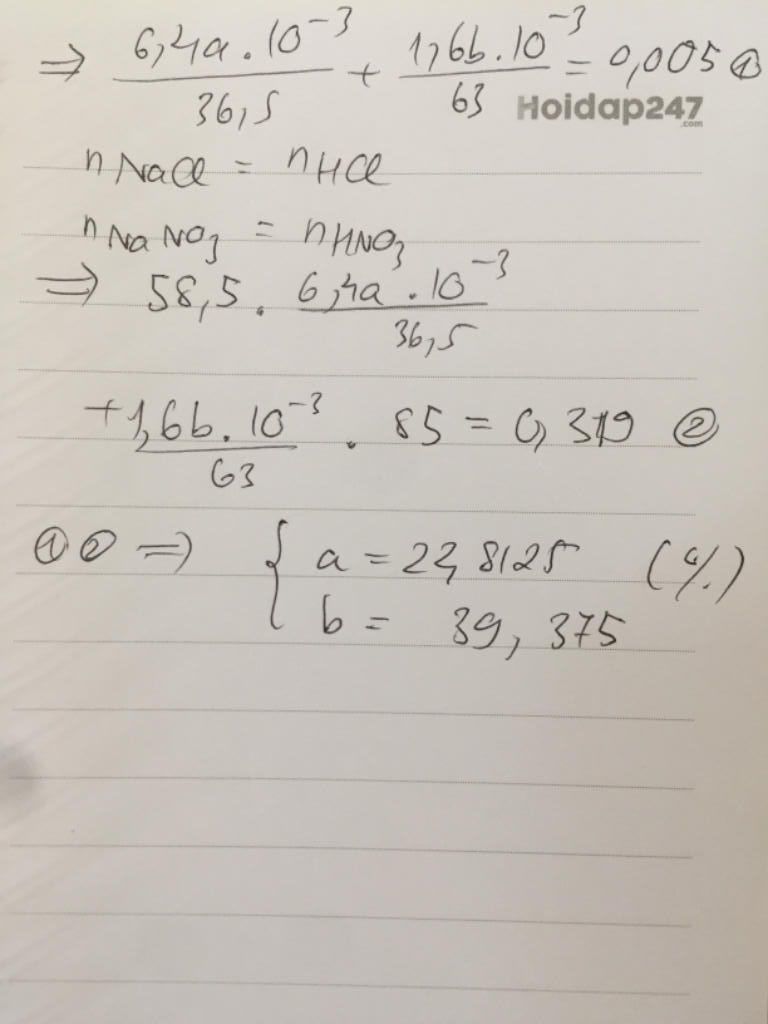 ⇒ 6,4a.10⁻³/36,5 + 1,6b.10⁻³/63 = 0,005 ①
Hoidap247
.com
nNaCl = nHCl
nNaNO₃ = nHNO₃
⇒ 58,5 . 6,4a.10⁻³/36,5
+ 1,6b.10⁻³/63 . 85 = 0,319 ②
① ② ⇒ { a = 22,8125 (%)
b = 39,375